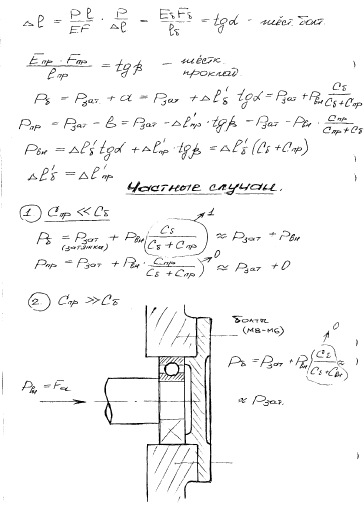 Δl = Pl/EF ; P/Δl = E₈F₈/l₈ = tgα - жёст. болт.
Eпр · Fпр / lпр = tgβ - жёстк. проклад.
Pδ = Pзат + a = Pзат + Δl'δ tgα = Pзат + Pвн Cδ/(Cδ + Cпр)
Pпр = Pзат - в = Pзат - Δl'пр · tgβ = Pзат - Pвн · Cпр/(Cпр + Cδ)
Pвн = Δl'δ tgα + Δl'пр · tgβ = Δl'δ (Cδ + Cпр)
Δl'δ = Δl'пр
Частные случаи.
① Cпр ≪ Cδ
1
Pδ = Pзат + Pвн (Cδ/(Cδ + Cпр)) ≈ Pзат + Pвн
(затяжка)
0
Pпр = Pзат + Pвн · (Cпр/(Cδ + Cпр)) ≈ Pзат + 0
② Cпр ≫ Cδ
болты
(М8-М6)
0
Pδ = Pзат + Pвн (Cδ/(Cδ + Cвн)) ≈
Pвн = Fa
≈ Pзат.